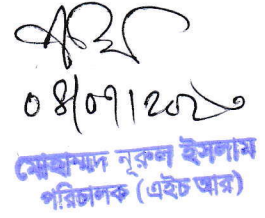 ০৪/০৭/২০২০
মোহাম্মদ নূরুল ইসলাম
পরিচালক (এইচ আর)